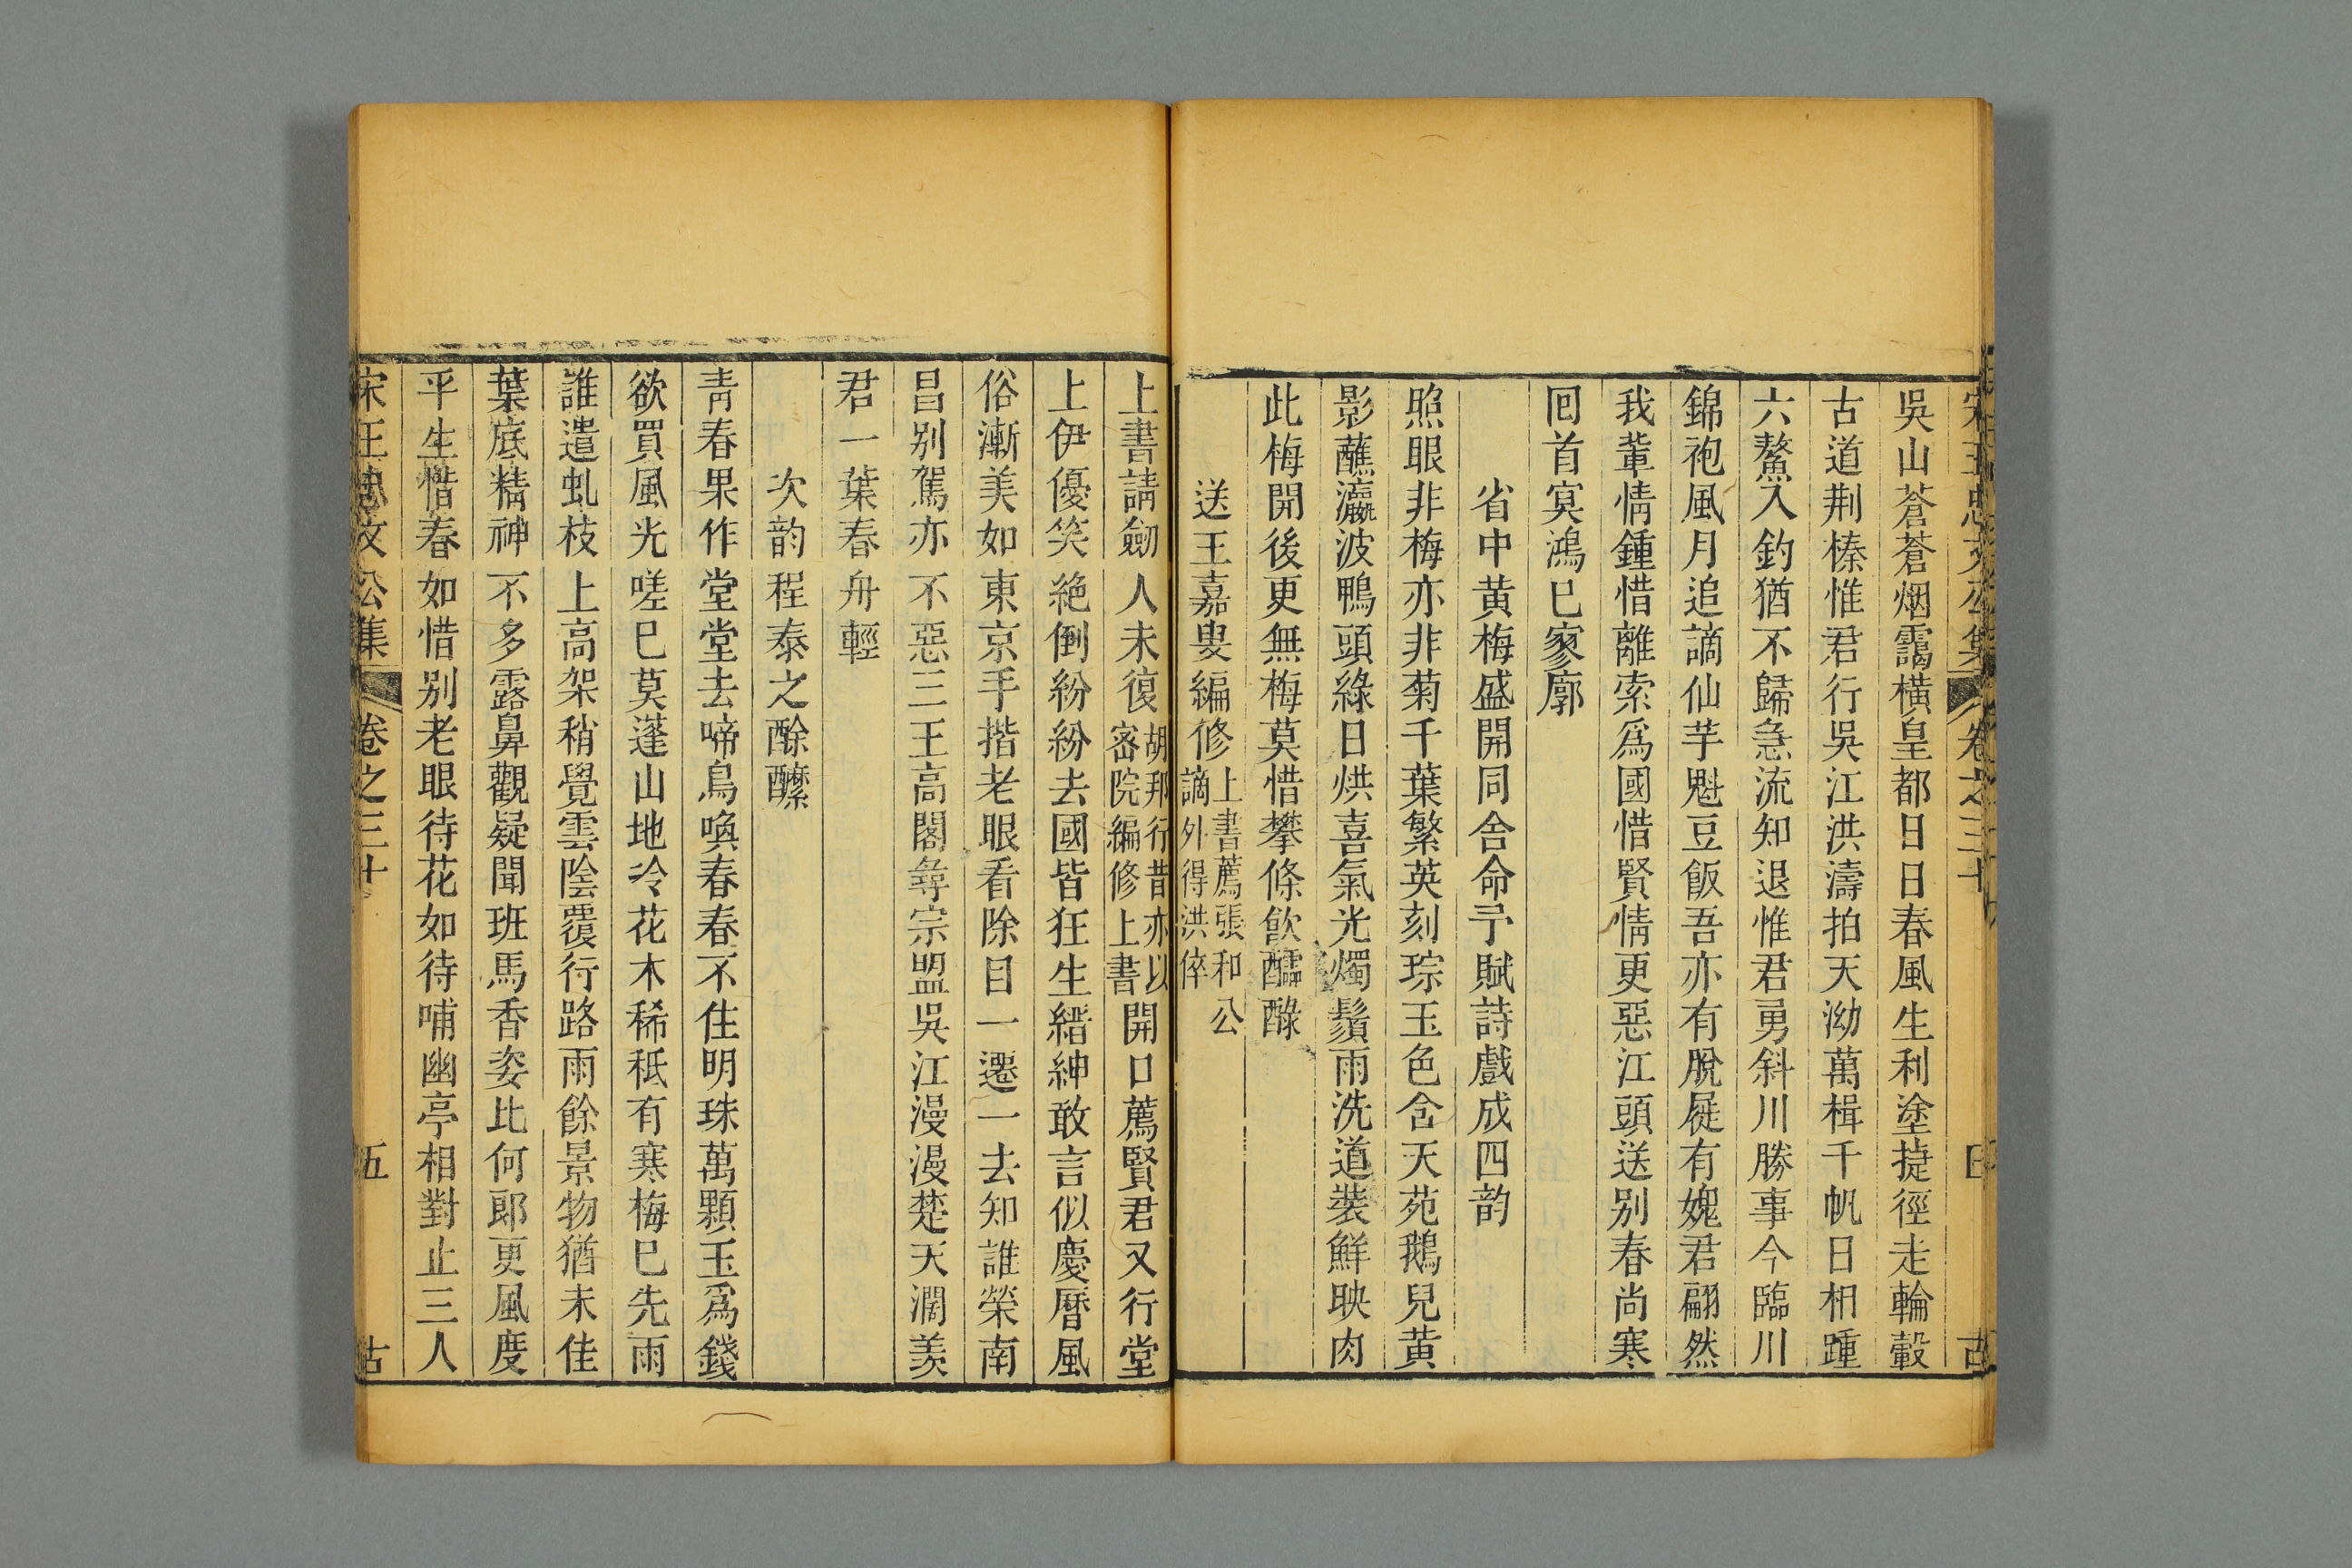 吳山蒼蒼烟靄橫皇都日日春風生利塗捷徑走輪轂
古道荆榛惟君行吳江洪濤拍天泑萬楫千帆日相踵
六鰲入釣猶不歸急流知退惟君勇斜川勝事今臨川
錦袍風月追謫仙芋魁豆飯吾亦有脫屣有媿君翩然
我輩情鍾惜離索爲國惜賢情更惡江頭送别春尚寒
回首㝠鴻巳寥廓
省中黄梅盛開同舍命予賦詩戲成四韵
照眼非梅亦非菊千葉繁英刻琮玉色含天苑鵝兒黄
影蘸瀛波鴨頭綠日烘喜氣光燭鬚雨洗道裝鮮映肉
此梅開後更無梅莫惜攀條飮醽醁
送王嘉叟編修上書薦張和公謫外得洪倅
上書請劒人未復胡邦衡昔亦以宻院編修上書開口薦賢君又行堂
上伊優笑絶倒紛紛去國皆狂生縉紳敢言似慶曆風
俗漸美如東京手揩老眼看除目一遷一去知誰榮南
昌别駕亦不惡三王高閣尋宗盟吳江漫漫楚天濶羡
君一葉春舟輕
次韵程泰之酴醿
青春果作堂堂去啼鳥喚春春不住明珠萬顆玉爲錢
欲買風光嗟巳莫蓬山地冷花木稀秖有寒梅巳先雨
誰遣虬枝上高架稍覺雲陰覆行路雨餘景物猶未佳
葉底精神不多露鼻觀疑聞班馬香姿比何郎更風度
平生惜春如惜别老眼待花如待哺幽亭相對止三人
宋王忠文公集 卷之三十 五